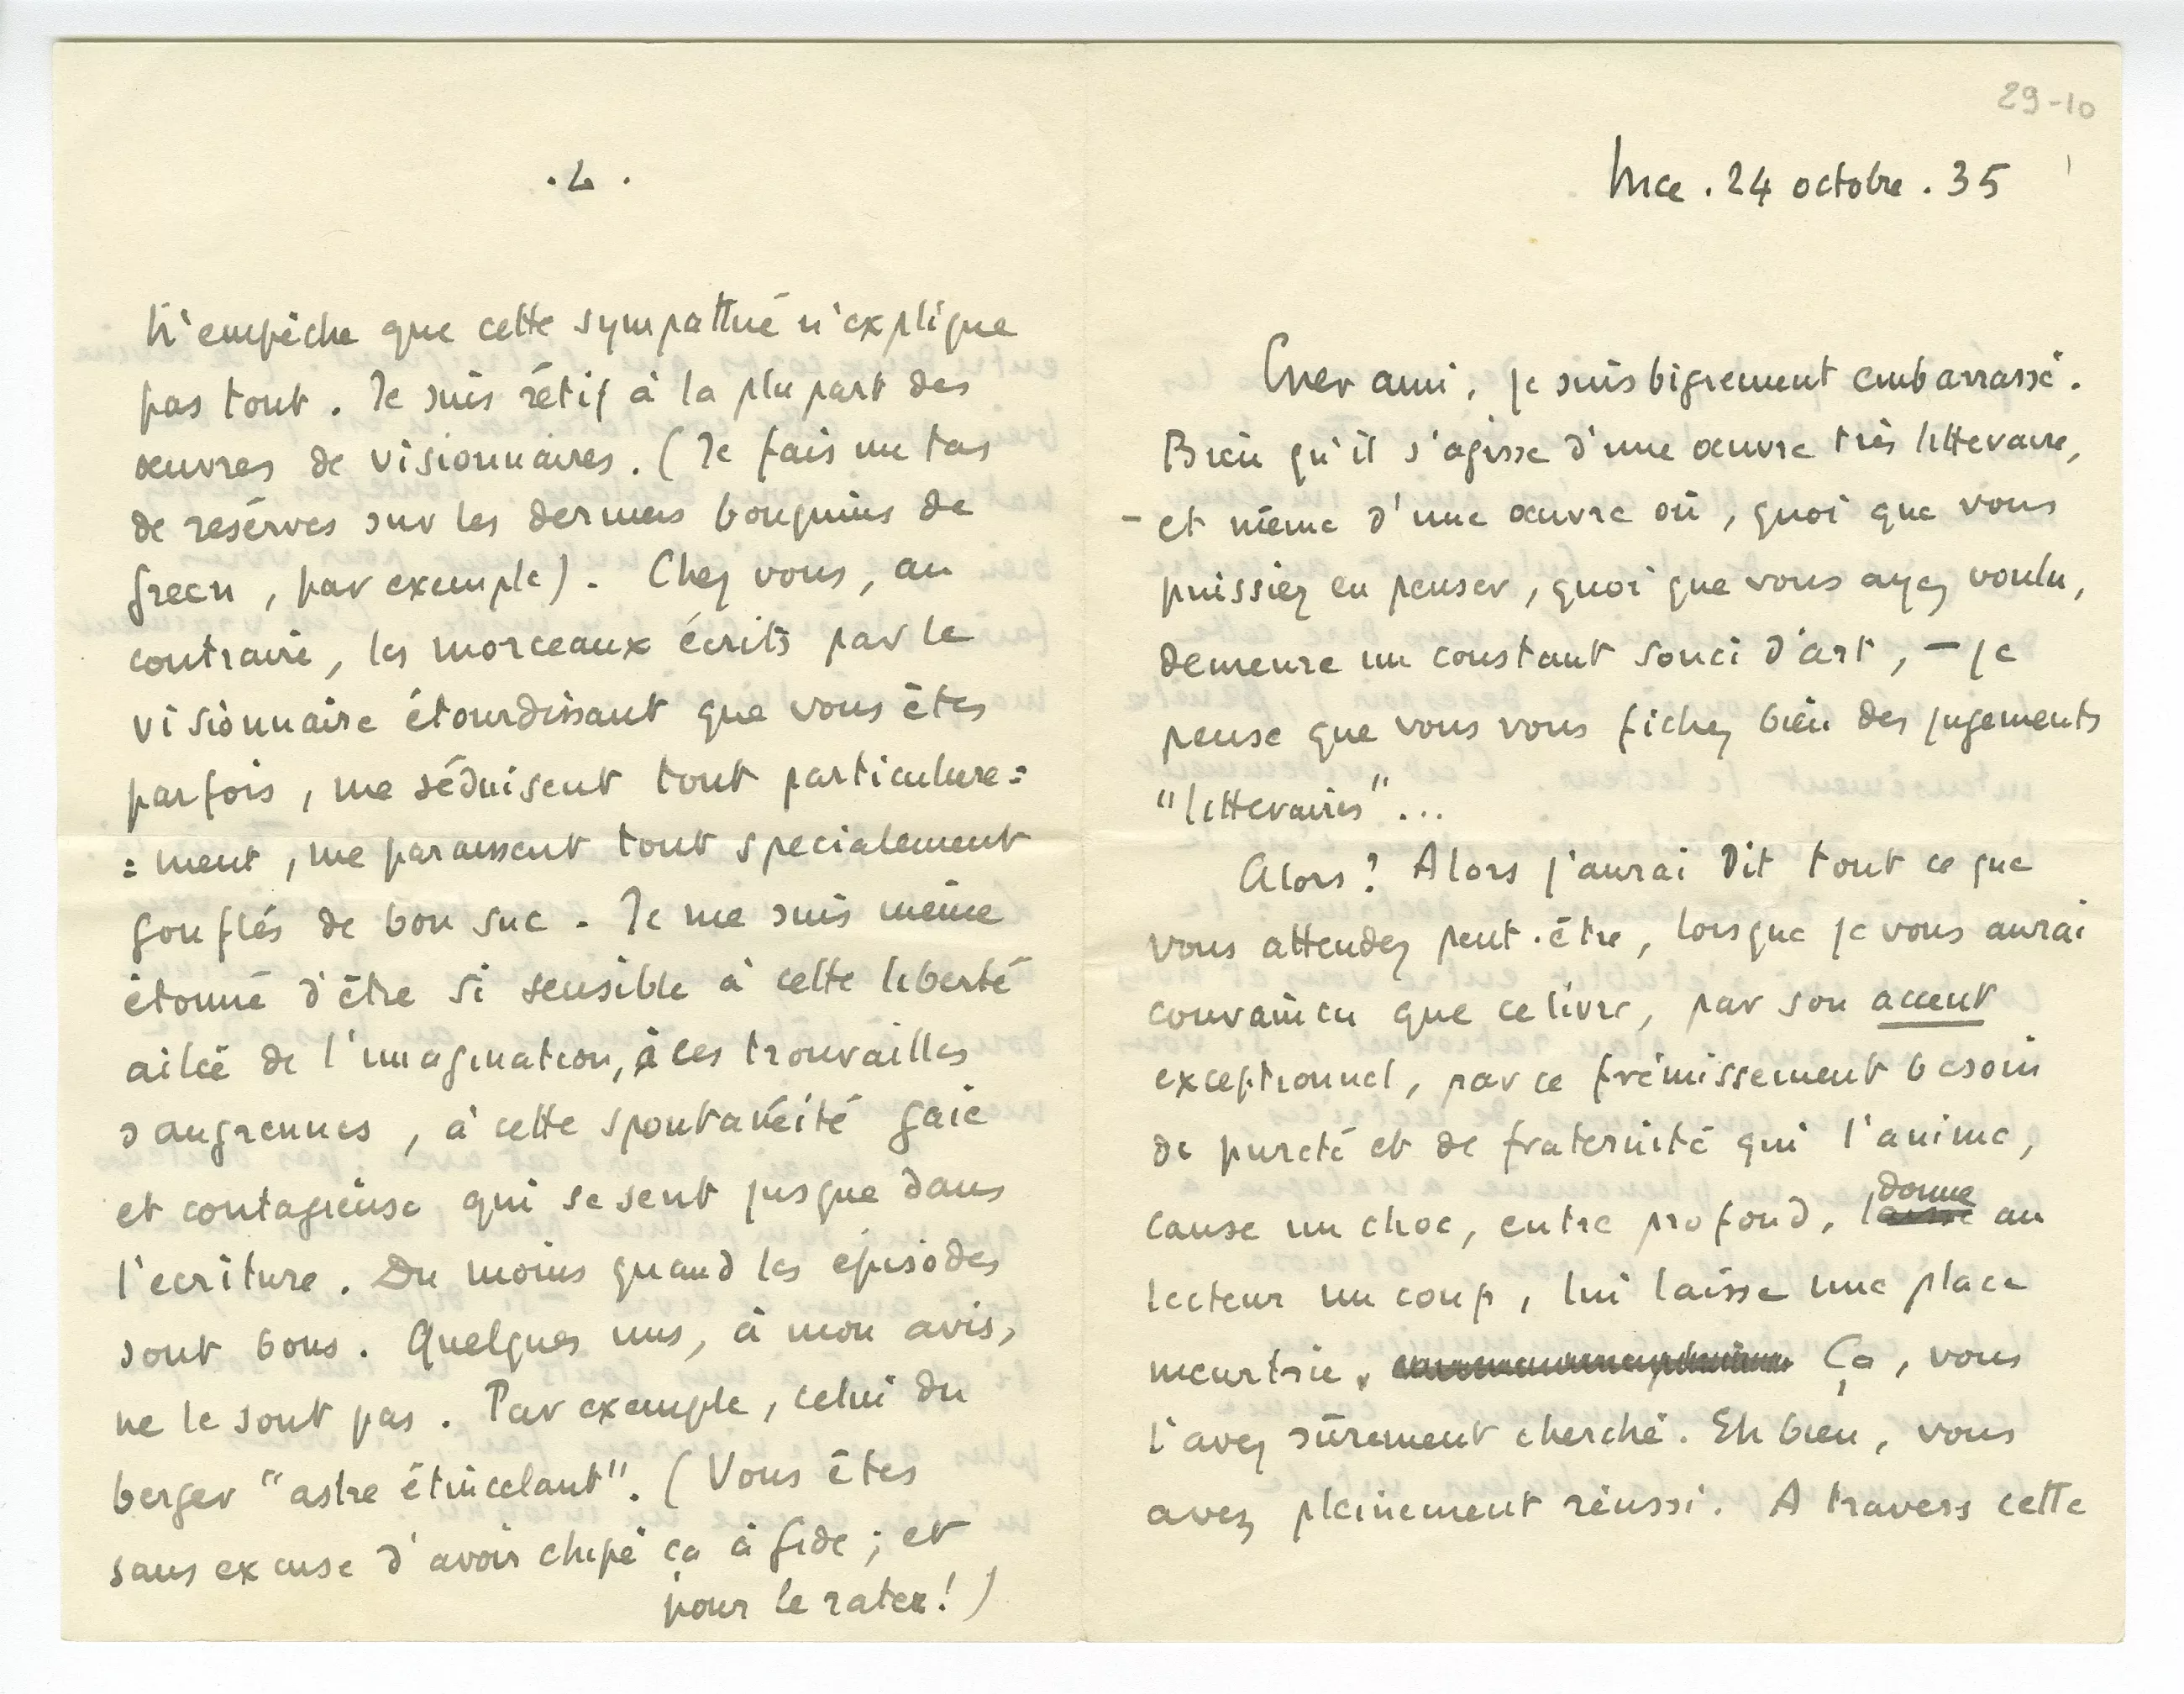 . 4 .
N'empêche que cette sympathie n'explique
pas tout. Je suis rétif à la plupart des
œuvres de visionnaires. (Je fais un tas
de resérves sur les derniers bouquins de
Green, par exemple). Chez vous, au
contraire, les morceaux écrits par le
visionnaire étourdissant que vous êtes
parfois, me séduisent tout particulière=
=ment, me paraissent tout spécialement
gonflés de bon suc. Je me suis même
étonné d'être si sensible à cette liberté
ailée de l'imagination, à ces trouvailles
saugrenues, à cette spontanéité gaie
et contagieuse qui se sent jusque dans
l'ecriture. Du moins quand les épisodes
sont bons. Quelques uns, à mon avis,
ne le sont pas. Par exemple, celui du
berger "astre étincelant". (Vous êtes
sans excuse d'avoir chipé ça à Gide; et
pour le rater!)
29-10
Nice . 24 octobre . 35
Cher ami, je suis bigrement embarrassé.
Bien qu'il s'agisse d'une œuvre très litteraire,
- et même d'une œuvre où, quoi que vous
puissiez en penser, quoi que vous ayez voulu,
demeure un constant souci d'art, - je
pense que vous vous fichez bien des jugements
"litteraires"...
Alors? Alors j'aurai dit tout ce que
vous attendez peut-être, lorsque je vous aurai
convaincu que ce livre, par son accent
exceptionnel, par ce frémissement besoin
de pureté et de fraternité qui l'anime,
donne
cause un choc, entre profond, laisse au
lecteur un coup, lui laisse une place
meurtrie. Ça, vous
l'avez sûrement cherché. Eh bien, vous
avez pleinement réussi. A travers cette